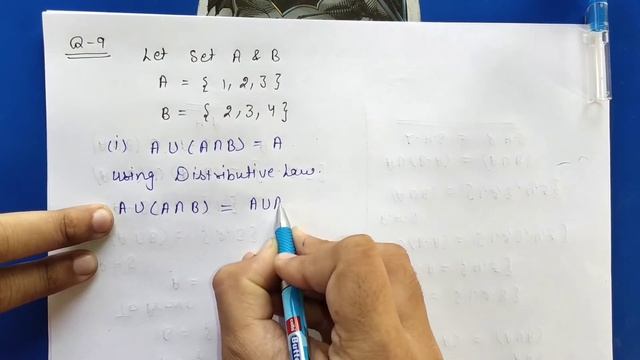 Q-9
Let Set A & B
A = { 1, 2, 3 }
B = { 2, 3, 4 }
(i) A ∪ (A ∩ B) = A
using Distributive Law.
A ∪ (A ∩ B) = A ∪